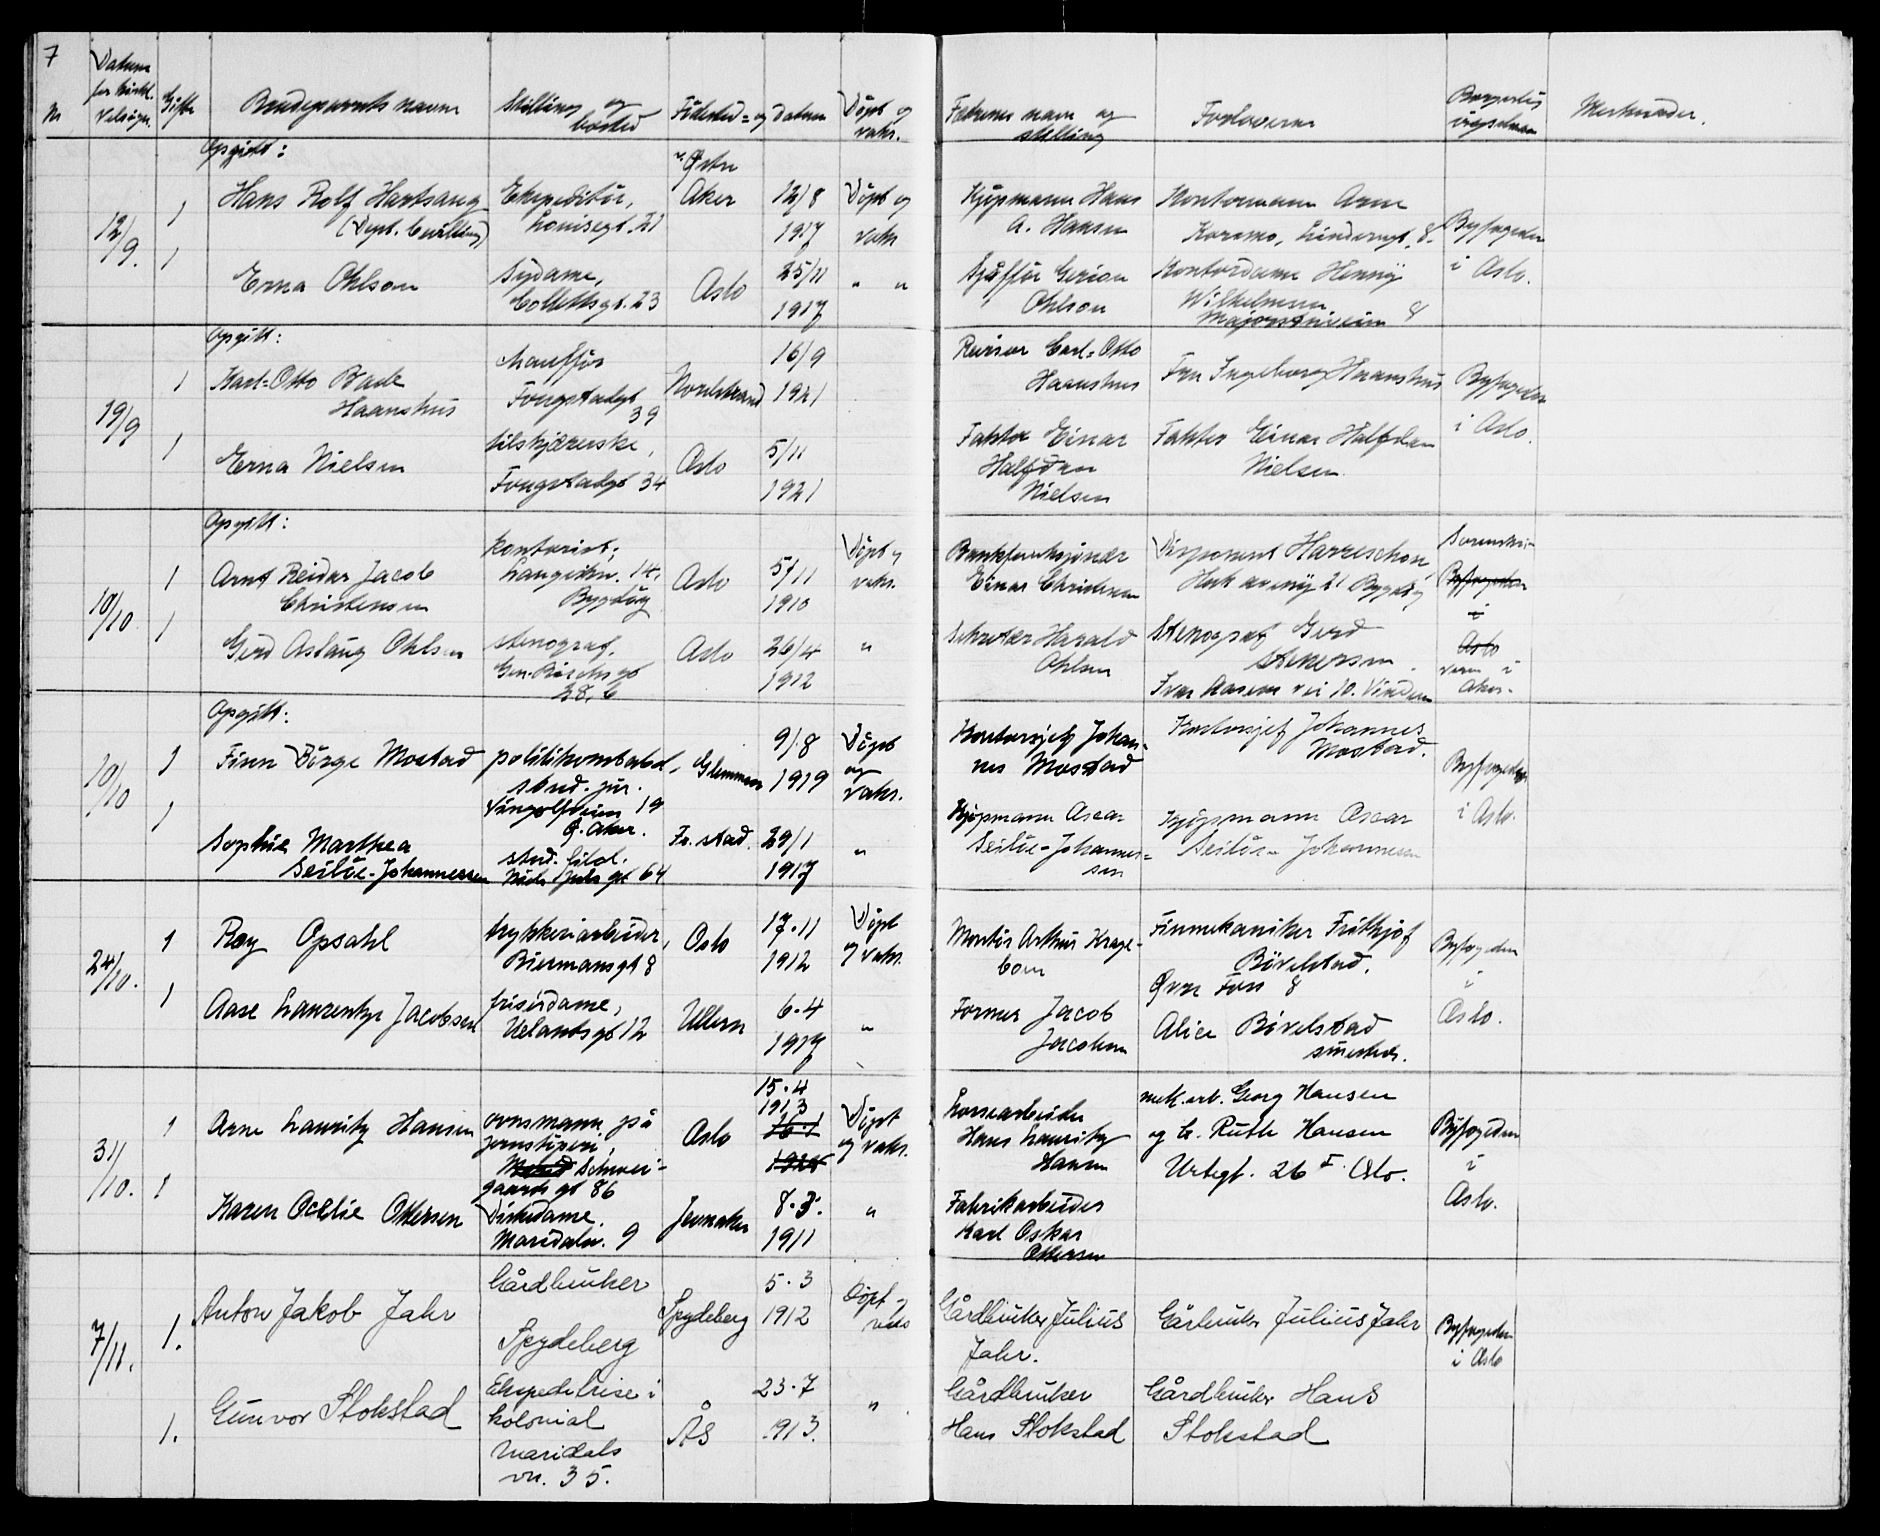 7
Nr
Datum
for kirkl.
Velsign.
Gifte
Brudeparrets navne
Stilling og
bosted
Födested- og datum
Döpt og
vaks.
Fedrenes navn og
stilling
Forlovere
Borgerlig
Merknader.
Opgitt:
12/9.
1
Hans Rolf Hartsang
Ekspeditör,
Louisegt. 21
v. Østre
Aker
12/8
1917
Döpt og
vaks
Kjöpmann Hans
A. Hansen
Kontormann Arne
Korsmo, Linderngt. 8.
Byfogeden
i Oslo.
1
Erna Ohlson
Sydame,
Collettsgt. 23
Oslo
25/11
1917
" "
Sjåffør Gerion
Ohlson
Kontordame Henny
Wilhelmsen
8
Opgitt:
19/9
1
Karl-Otto Bade
Haanshus
chauffør
Fougstadgt
39
Nordstrand
16/9
1921
Revisor Carl-Otto
Haanshus
Fru Ingeborg Haanshus
Byfogeden
i Oslo.
1
Erna Nielsen
tilskjærerske,
Fougstadgt 34
Oslo
5/11
1921
Faktor Einar
Halfdan
Nielsen
Faktor Einar Halfdan
Nielsen.
Opgitt:
10/10
1
Arnt Reidar Jacob
Christensen
kontorist,
Langvikv. 14,
Bygdöy
Oslo
5/11
1910
Döpt og
vaks.
Bankfunksjonær
Einar Christensen
Disponent Harreschou,
Huk aveny 21 Bygdöy
Sorenskri-
Byfogeden
i
Oslo
veren i
Aker.
1
Gerd Aslaug Ohlsen
stenograf,
Gen. Birchs gt
28, b
Oslo
26/4
1912
"
Sekretær Harald
Ohlsen
Stenograf Gerd
Stenersen.
Ivar Aasens vei 10. Vinderen
Opgitt:
10/10
1
Finn Börge Mostad
politikonstabel,
stud. jur.
Vingolfveien 19
Ø. Aker.
Glemmen
9/8
1919
Döpt
og
vaks.
Kontorsjef Johan-
nes Mostad
Kontorsjef Johannes
Mostad.
Byfogeden
i Oslo.
1
Sophie Marthea
Seilöe-Johannessen
stud. filol.
Niels Juels gt 64
Fr. stad.
29/1
1917
"
Kjøpmann Oscar
Seilöe-Johannes-
sen
Kjøpmann Oscar
Seilöe-Johannessen
24/10.
1
Roy Opsahl
trykkeriarbeider,
Biermansgt 8
Oslo
17.11
1912
Döpt
og vaks.
Montör Arthur Krage-
boen
Finmekaniker Frithjof
Bövelstad.
Øvre Foss 8
Byfogeden
i
Oslo.
1
Aase Laurentze Jacobsen
frisördame,
Uelandsgt 12
Ullern
6.4
1917
"
Former Jacob
Jacobsen
Alice Bövelstad
smsteds.
31/10.
1
Arne Lauritz Hansen
ovnsmann på
jernstöperi,
Schwei-
gaards gt 86
Oslo
15.4
1913
16.1
Döpt
og vaks.
Lossearbeider
Hans Lauritz
Hansen
mek. arb. Georg Hansen
og h. Ruth Hansen
Urtegt. 26 I Oslo.
Byfogeden
i
Oslo.
1
Karen Ocelie Ottersen
Diskdame.
Maridalsv. 9
Jevnaker
8.3.
1911
"
Fabrikarbeider
Karl Oskar
Ottersen
7/11.
1.
Anton Jakob Jahr
Gårdbruker
Spydeberg
Spydeberg
5.3
1912
Döpt -
vaks
Gårdbruker Julius
Jahr.
Gårbruker Julius Jahr
Byfogeden
i Oslo
1.
Gunvor Stokstad
Ekspeditrise i
kolonial
Maridals
vn. 35.
Ås
23.7
1913.
"
Gårdbruker
Hans Stokstad
Gårdbruker Hans
Stokstad